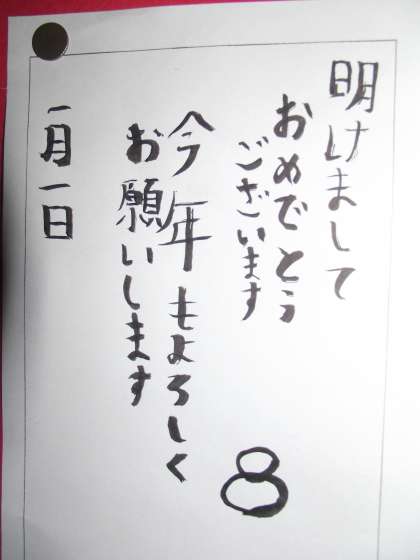 明けまして
おめでとう
ございます
今年もよろしく
お願いします
一月一日
8